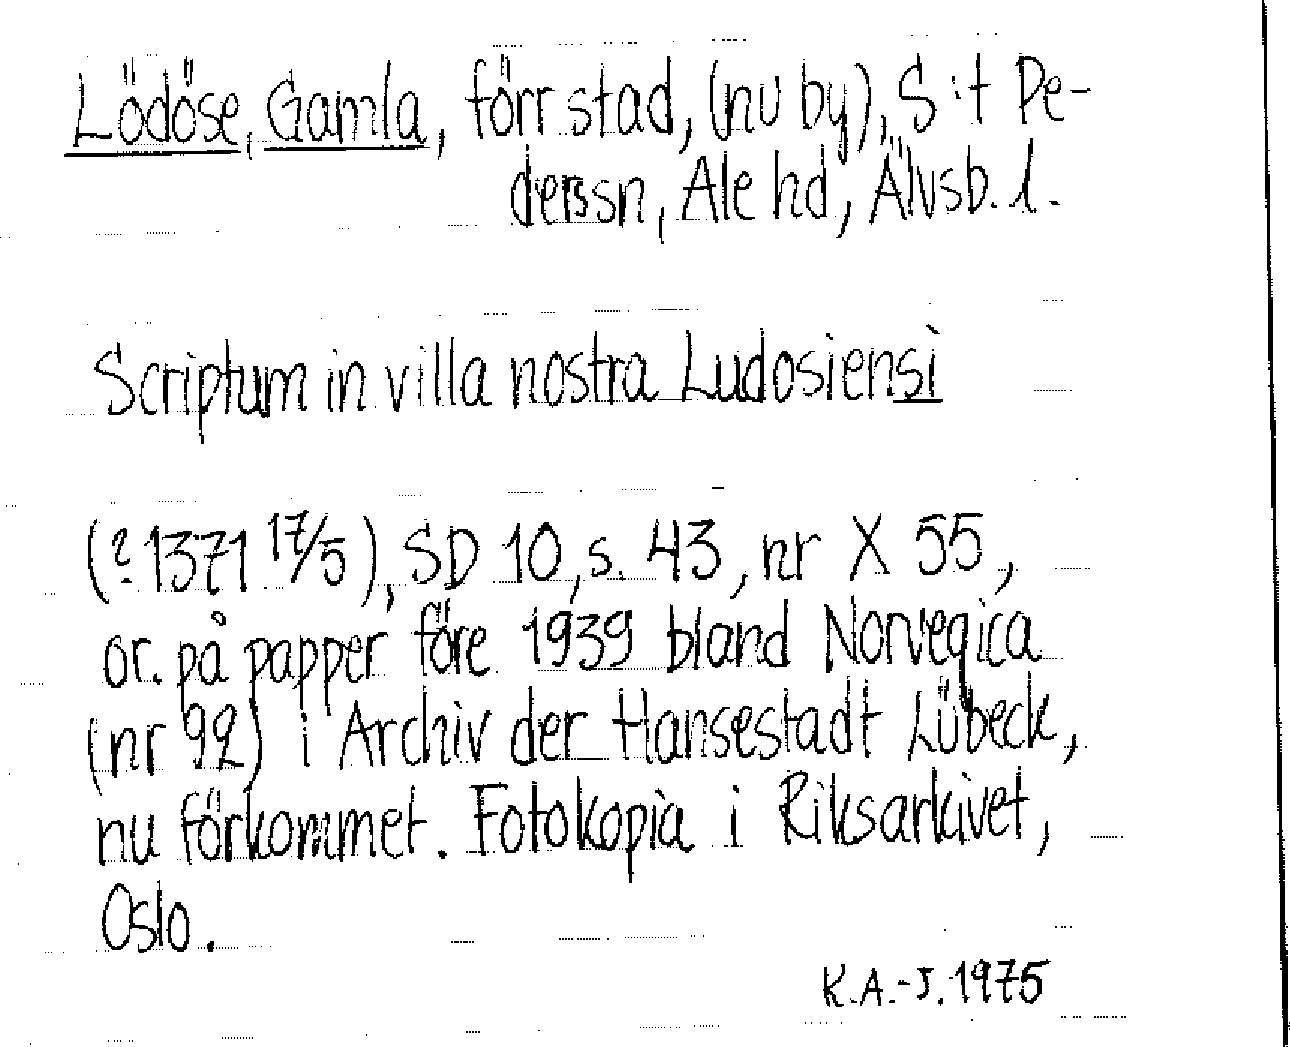 Lödöse, Gamla, förr stad, (nu by), S:t Pe-
derssn, Ale hd, Älvsb. l.
Scriptum in villa nostra Ludosiensi
(? 1371 17/5), SD 10, s. 43, nr X 55,
or. på papper före 1939 bland Norvegica
(nr 92) i Archiv der Hansestadt Lübeck,
nu förkommet. Fotokopia i Riksarkivet,
Oslo.
K.A.-J. 1975